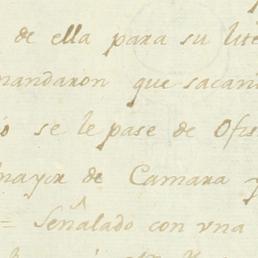 de ella para su lite
mandaron que sacan
se le pase de Ofi
mayor de Camara y
= Señalado con vna